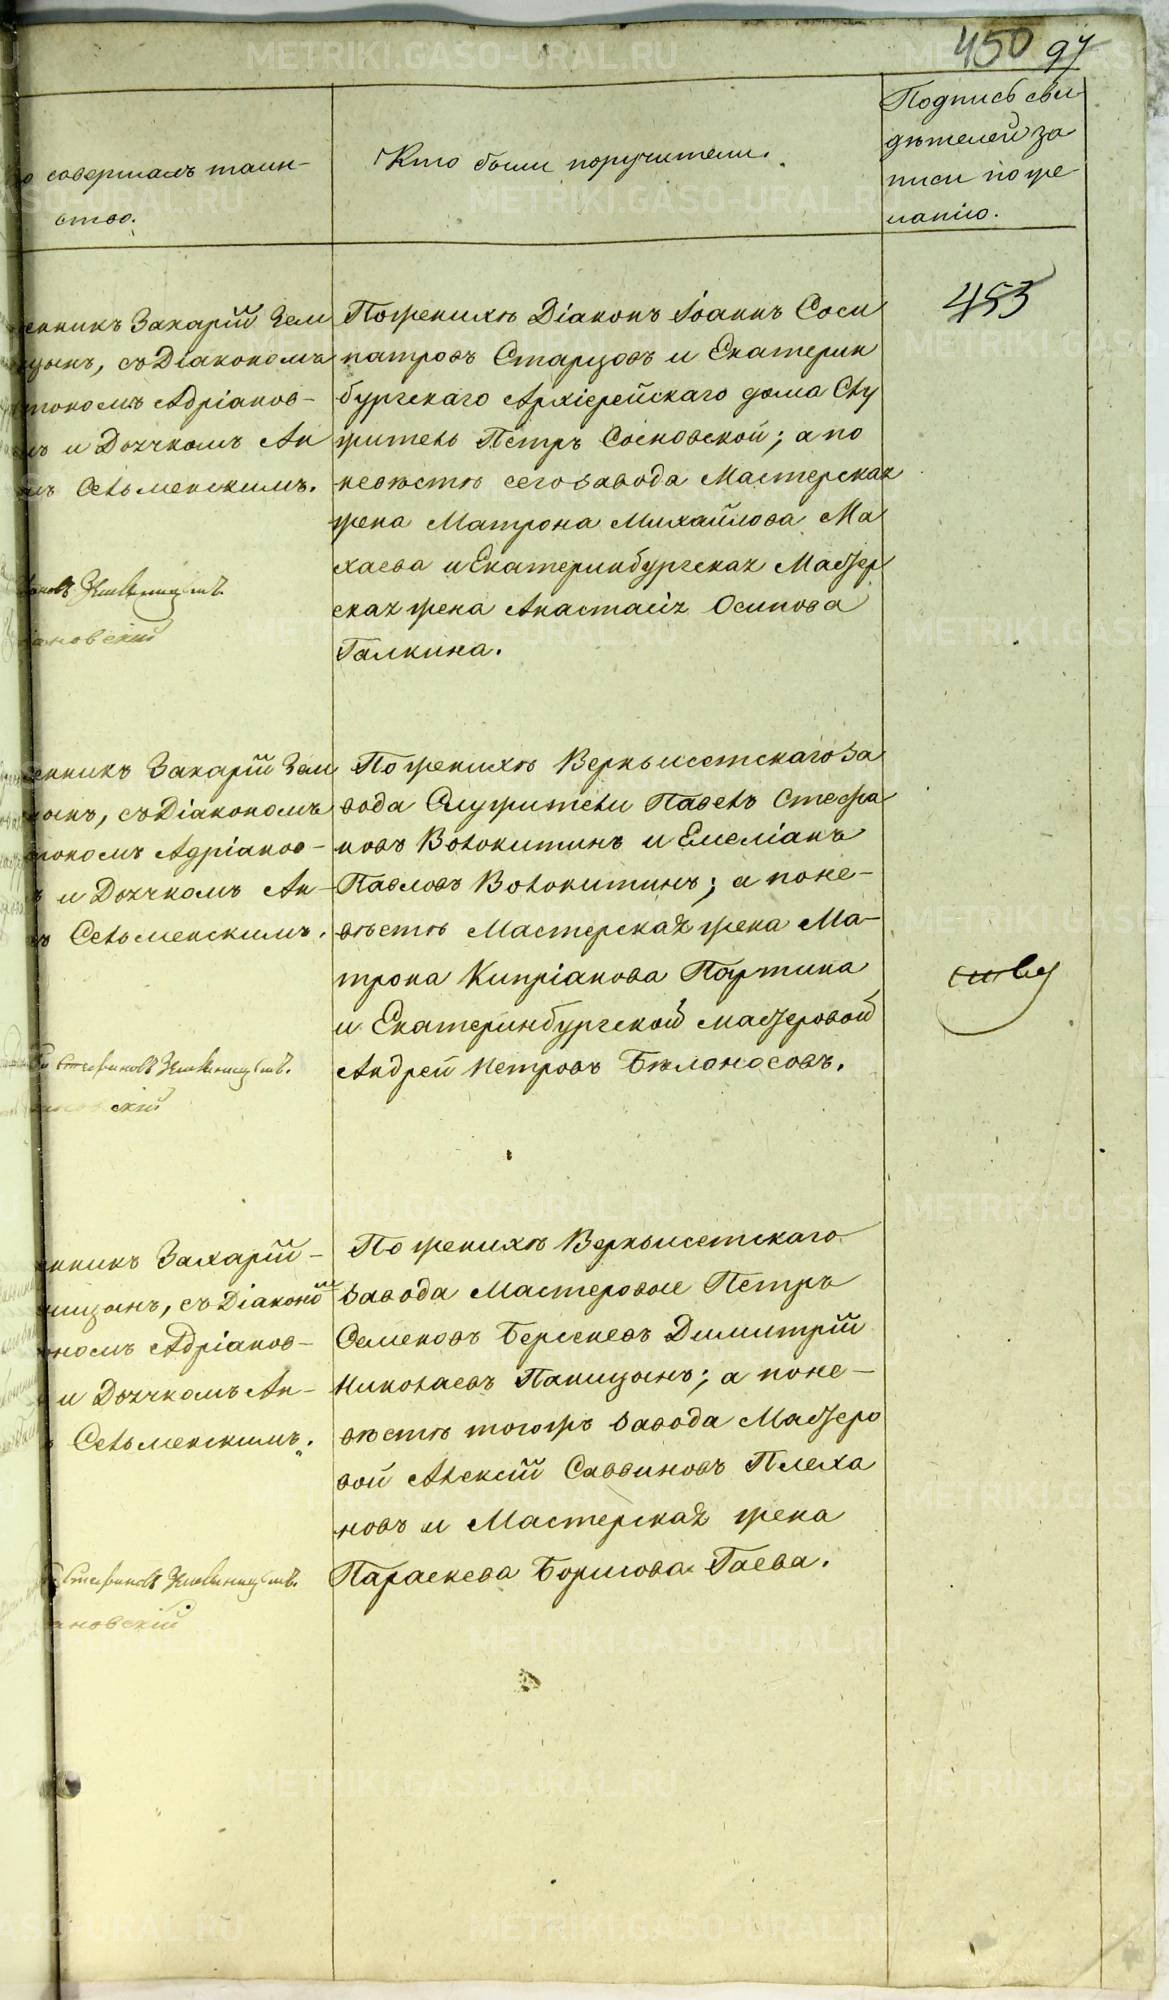 450 97
о совершалъ таин-
ство.
Кто были поручители.
Подпись сви-
дѣтелей за
писи по же-
ланію.
453
енникъ Захарій Зем
цынъ, съ Діакономъ
Адріанов-
и Дьячкомъ Ан
Сельменскимъ.
ановскій
По женихѣ Діаконъ Іоаннъ Соси
патровъ Старцовъ и Екатерин
бургскаго Архіерейскаго дома Слу
житель Петръ Сосновской; а по
невѣстѣ сего завода Мастерская
жена Матрона Михайлова Ма
хаева и Екатеринбургская Мастер
ская жена Анастасія Осипова
Галкина.
енникъ Захарій Зем
цынъ, съ Діакономъ
Адріанов-
и Дьячкомъ Ан-
Сельменскимъ.
скій
По женихѣ Верхъисетскаго За
вода Служители Павелъ Стефа
новъ Волокитинъ и Емеліанъ
Павловъ Волокитинъ; а по не-
вѣстѣ Мастерская жена Ма-
трона Кипріанова Портина
и Екатеринбургской мастеровой
Андрей Петровъ Бѣлоносовъ.
нникъ Захарій
съ Діакономъ
ономъ Адріанов-
и Дьячкомъ Ан-
Сельменскимъ.
ановскій
По женихѣ Верхъисетскаго
завода Мастеровые Петръ
Семеновъ Берсеневъ Димитрій
Николаевъ Паницынъ; а по не-
вѣстѣ тогожъ завода Мастеро
вой Алексій Саввиновъ Плеха
новъ и Мастерская жена
Параскева Борисова Гаева.
METRIKI.GASO-URAL.RU